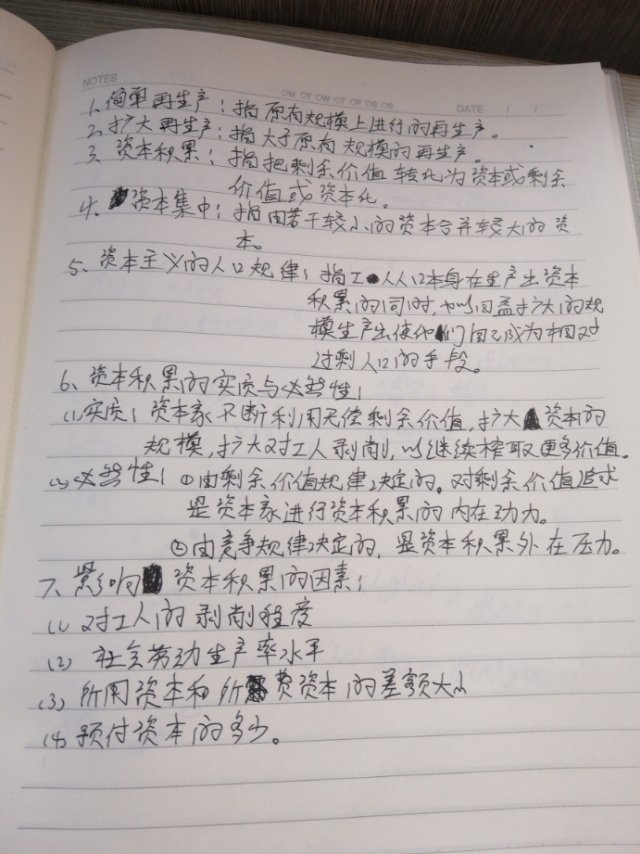 NOTES
MO TU WE TH FR SA SU DATE / /
1、简单再生产：指原有规模上进行的再生产。
2、扩大再生产：指大于原有规模的再生产。
3、资本积累：指把剩余价值转化为资本或剩余
价值或资本化。
4、资本集中：指由若干较小的资本合并较大的资
本。
5、资本主义的人口规律：指工人人口本身在生产出资本
积累的同时，也以日益扩大的规
模生产出使他们自己成为相对
过剩人口的手段。
6、资本积累的实质与必然性：
(1)实质：资本家不断利用无偿剩余价值，扩大资本的
规模，扩大对工人剥削，以继续榨取更多价值。
(2)必然性：①由剩余价值规律决定的。对剩余价值追求
是资本家进行资本积累的内在动力。
②由竞争规律决定的，是资本积累外在压力。
7、影响资本积累的因素：
(1)对工人的剥削程度
(2)社会劳动生产率水平
(3)所用资本和所费资本的差额大小
(4)预付资本的多少。